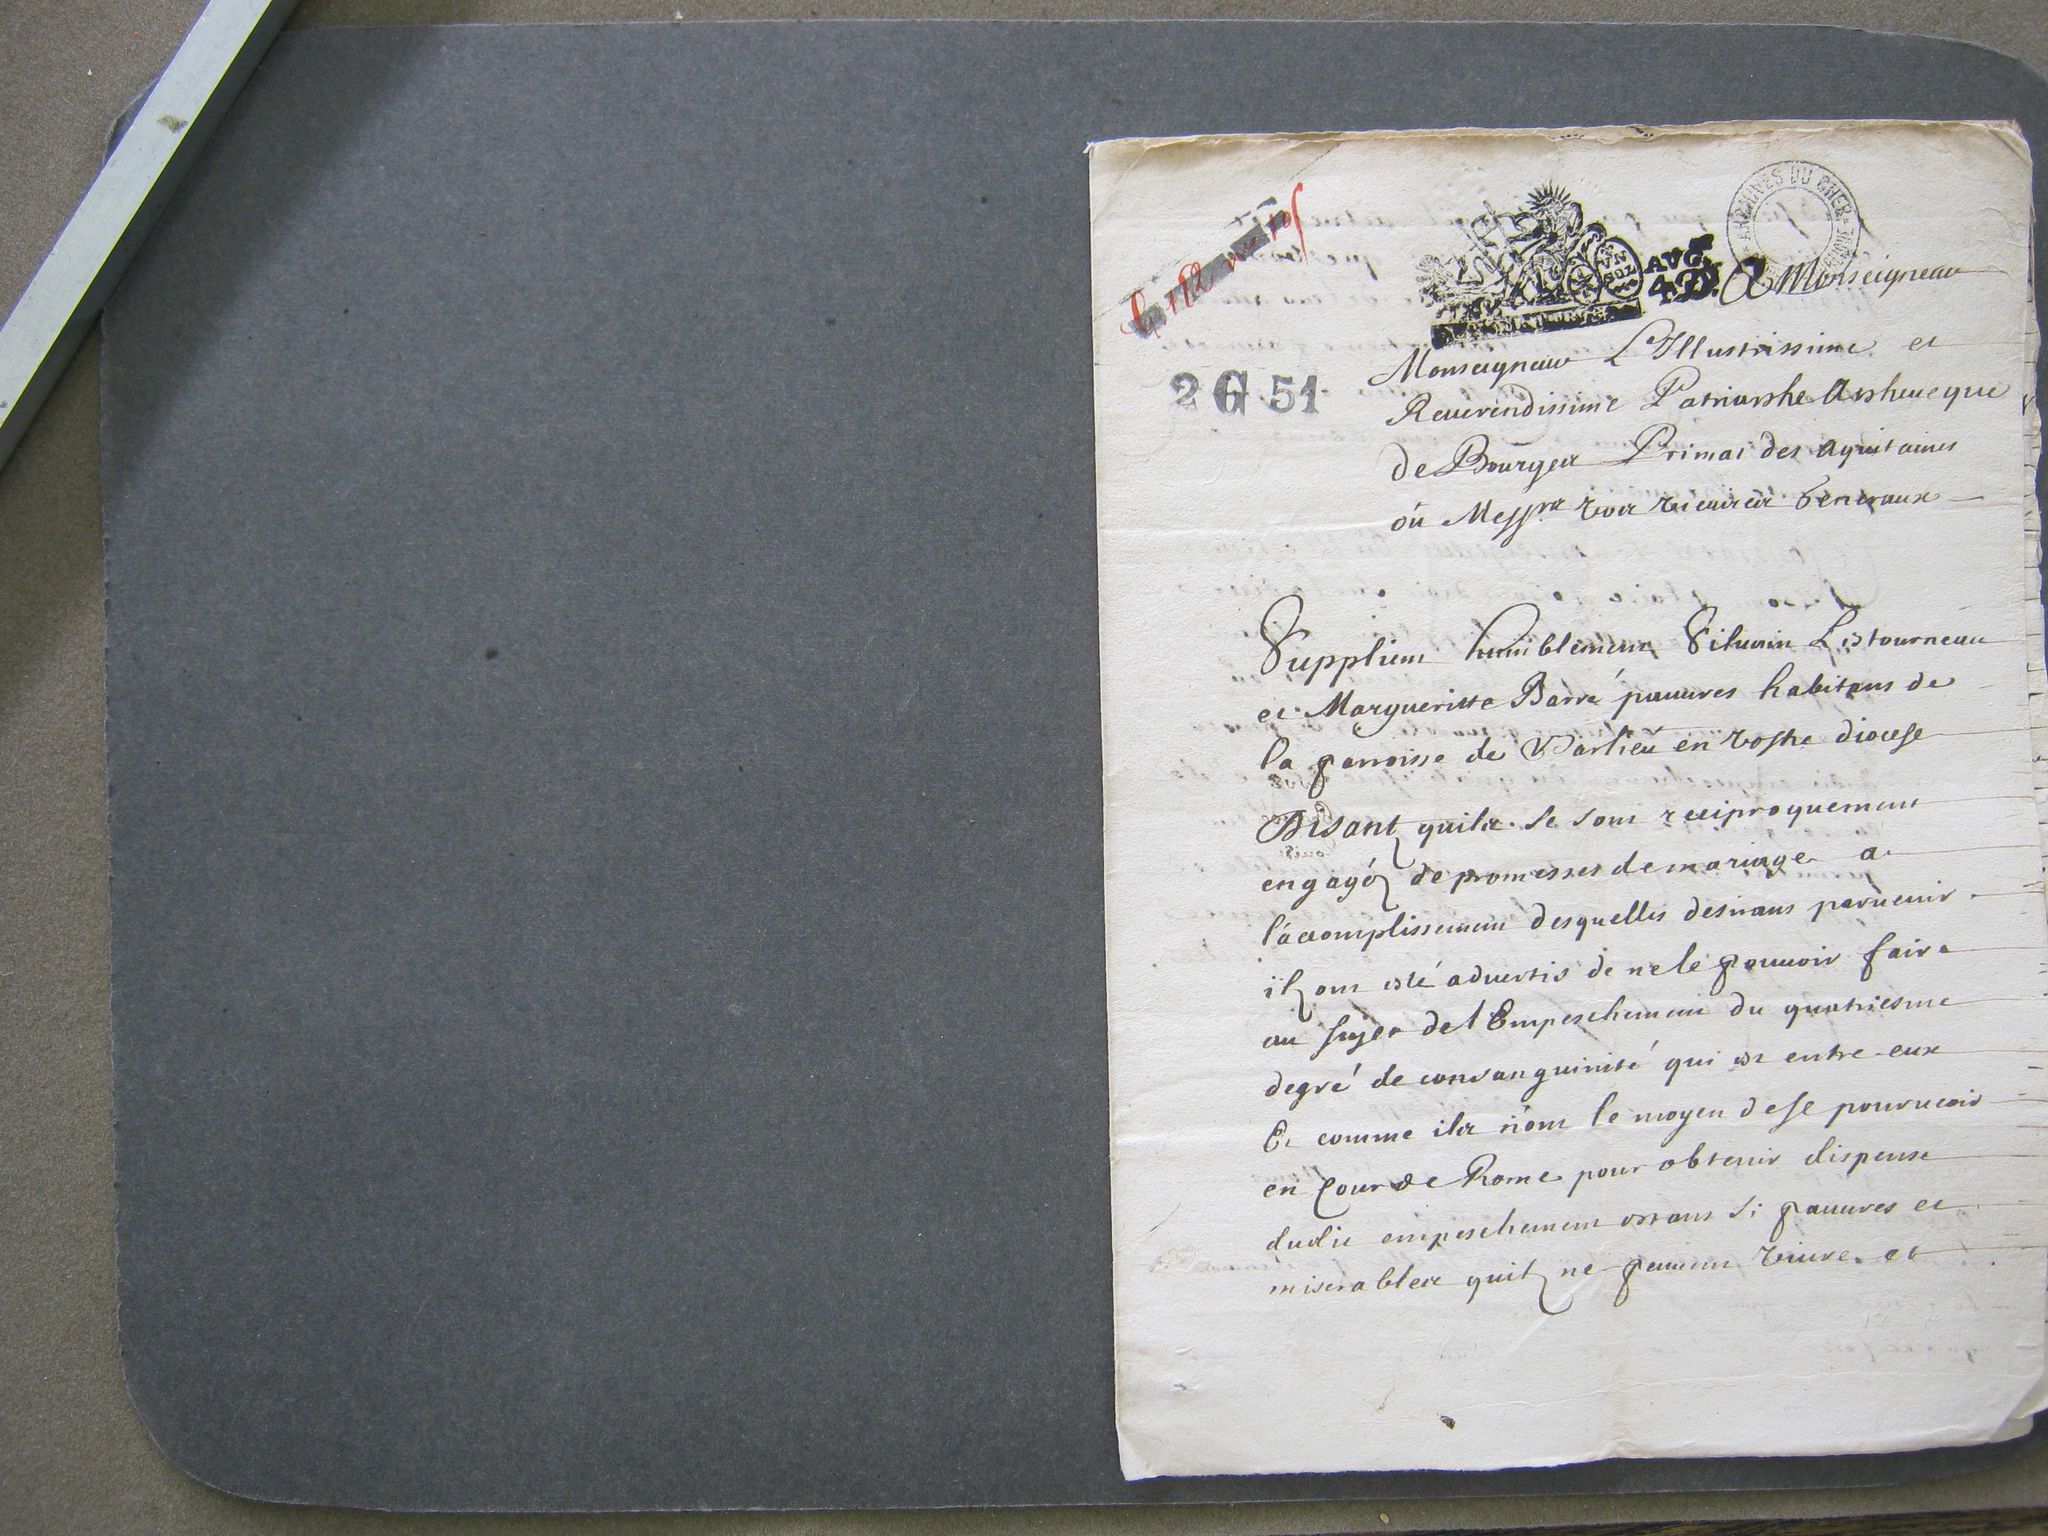 ARCHIVES DU CHER
AVG.
4.D.
VN SOL
2 G 51
A Monseigneur
Monseigneur L'Illustrissime et
Reuerendissime Patriarche Archeueque
de Bourges Primat des Aquitaines
ou Messrs vos vicaires Generaux
Supplient humblement Siluain Lestourneau
et Margueritte Barré pauures habitans de
la parroisse de en vostre diocese
Disant quils se sont reciproquement
engagéz de promesses de mariage a
l'acomplissement desquelles desirans paruenir
ilz ont esté aduertis de ne le pouuoir faire
au sujet de l'Empeschement du quatriesme
degré de consanguinité qui est entre eux
Et comme ils n'ont le moyen de se pouruoir
en Cour de Rome pour obtenir dispense
dudit empeschement estans si pauures et
miserables quilz ne peuuent viure et